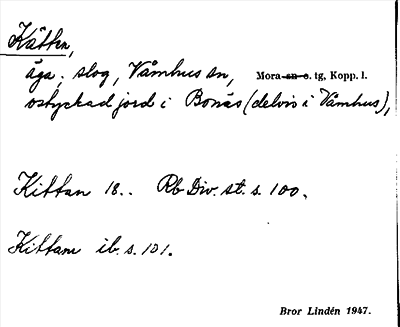 Kätten,
äga, slog, Våmhus sn, Mora sn o. tg, Kopp. l.
ostyckad jord i Bonäs (delvis i Våmhus),
Kittan 18.. Rb Div. st. s. 100.
Kittam ib. s. 101.
Bror Lindén 1947.